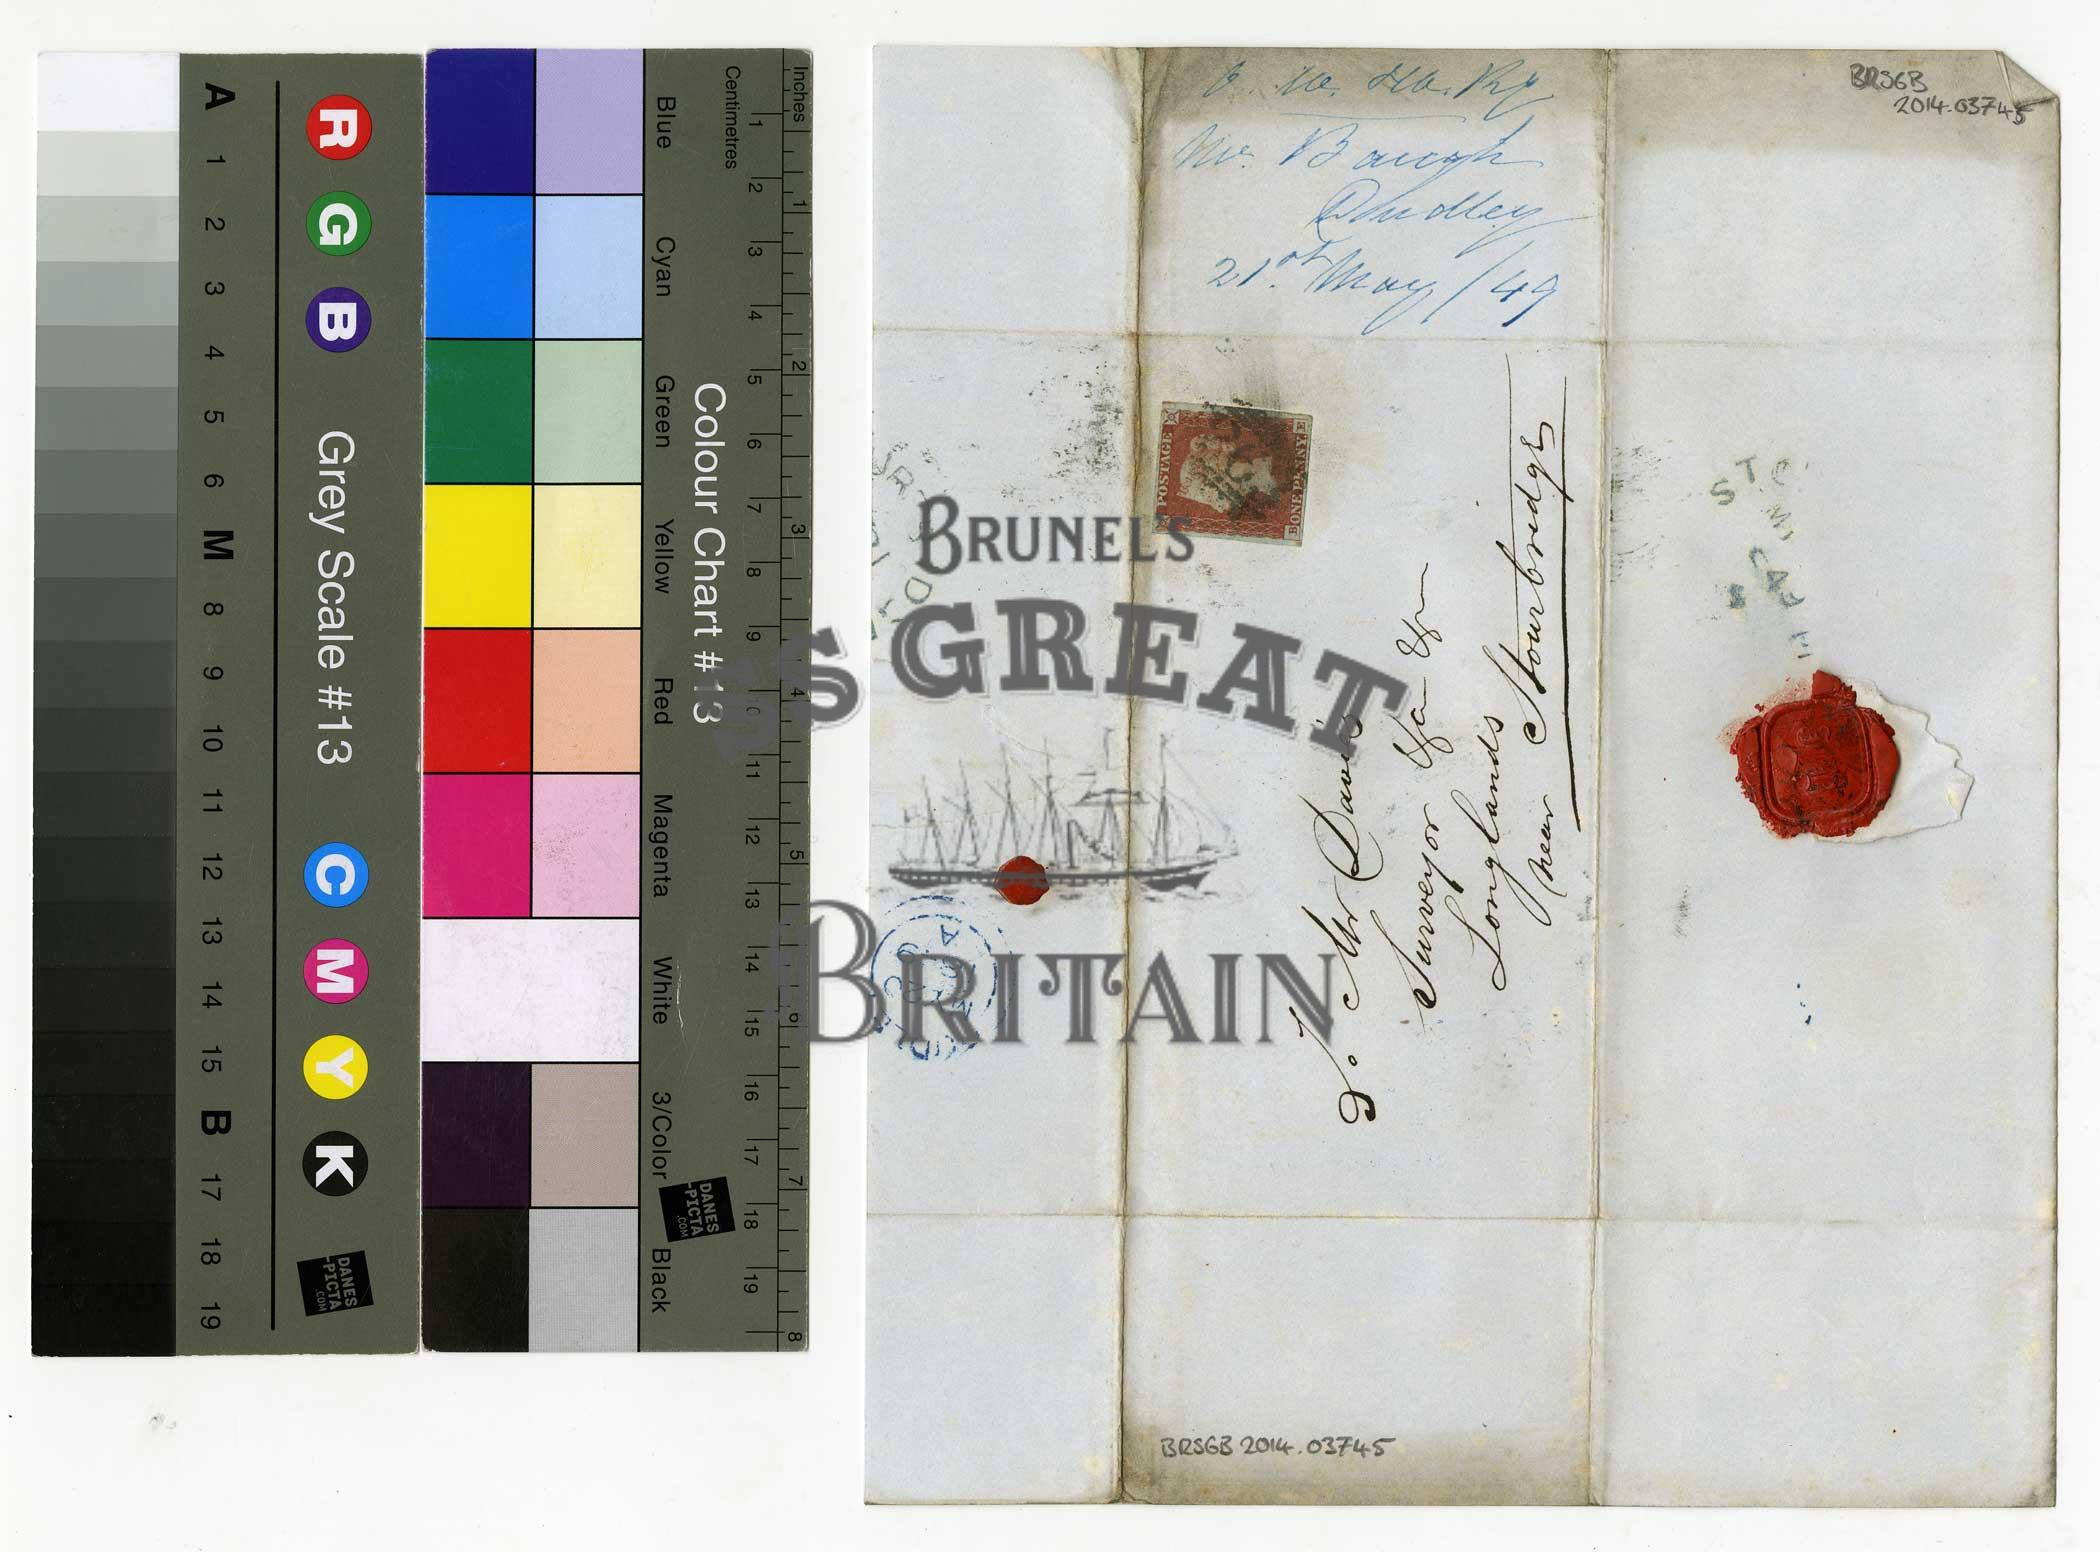 A
1
2
3
4
5
6
M
8
9
10
11
12
13
14
15
B
17
18
19
R G B
Grey Scale #13
C M Y K
DANES
-PICTA
.COM
Blue Cyan Green Yellow Red Magenta White 3/Color Black
Colour Chart #13
DANES
-PICTA
.COM
Centimetres 1 2 3 4 5 6 7 8 9 10 11 12 13 14 15 16 17 18 19
Inches 1 2 3 4 5 6 7 8
O. W. & W. Ry
Mr. Baugh
Dudley
21st May / 49
BRSGB
2014.03745
POSTAGE
ONE PENNY
B E
To Mr Davis
Surveyor
Longlands
near Stourbridge
BRSGB 2014.03745
BRUNEL'S
SS GREAT
BRITAIN